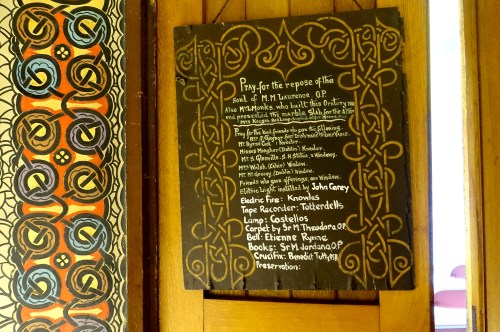 Pray for the repose of the
Soul of M.M. Laurence O.P.
Also Mr Monks, who built this Oratory
and presented the marble Slab for the Altar
Pray for the kind friends who gave the following.
Mr Byrne Cork Kneeler.
Misses Meagher (Dublin) Kneeler.
Windows.
Mrs Walsh Window.
(Dublin) Window.
Friends who gave offerings, one Window.
Electric Light installed by John Carey
Electric Fire: Knowles
Tape Recorder: Totterdells
Lamp: Costellos
Carpet by Sr M. Theodora, O.P.
Bell: Etienne Rynne
Books: Sr M. Jordana, O.P
Crucifix: Benedict Tutty
Preservation: